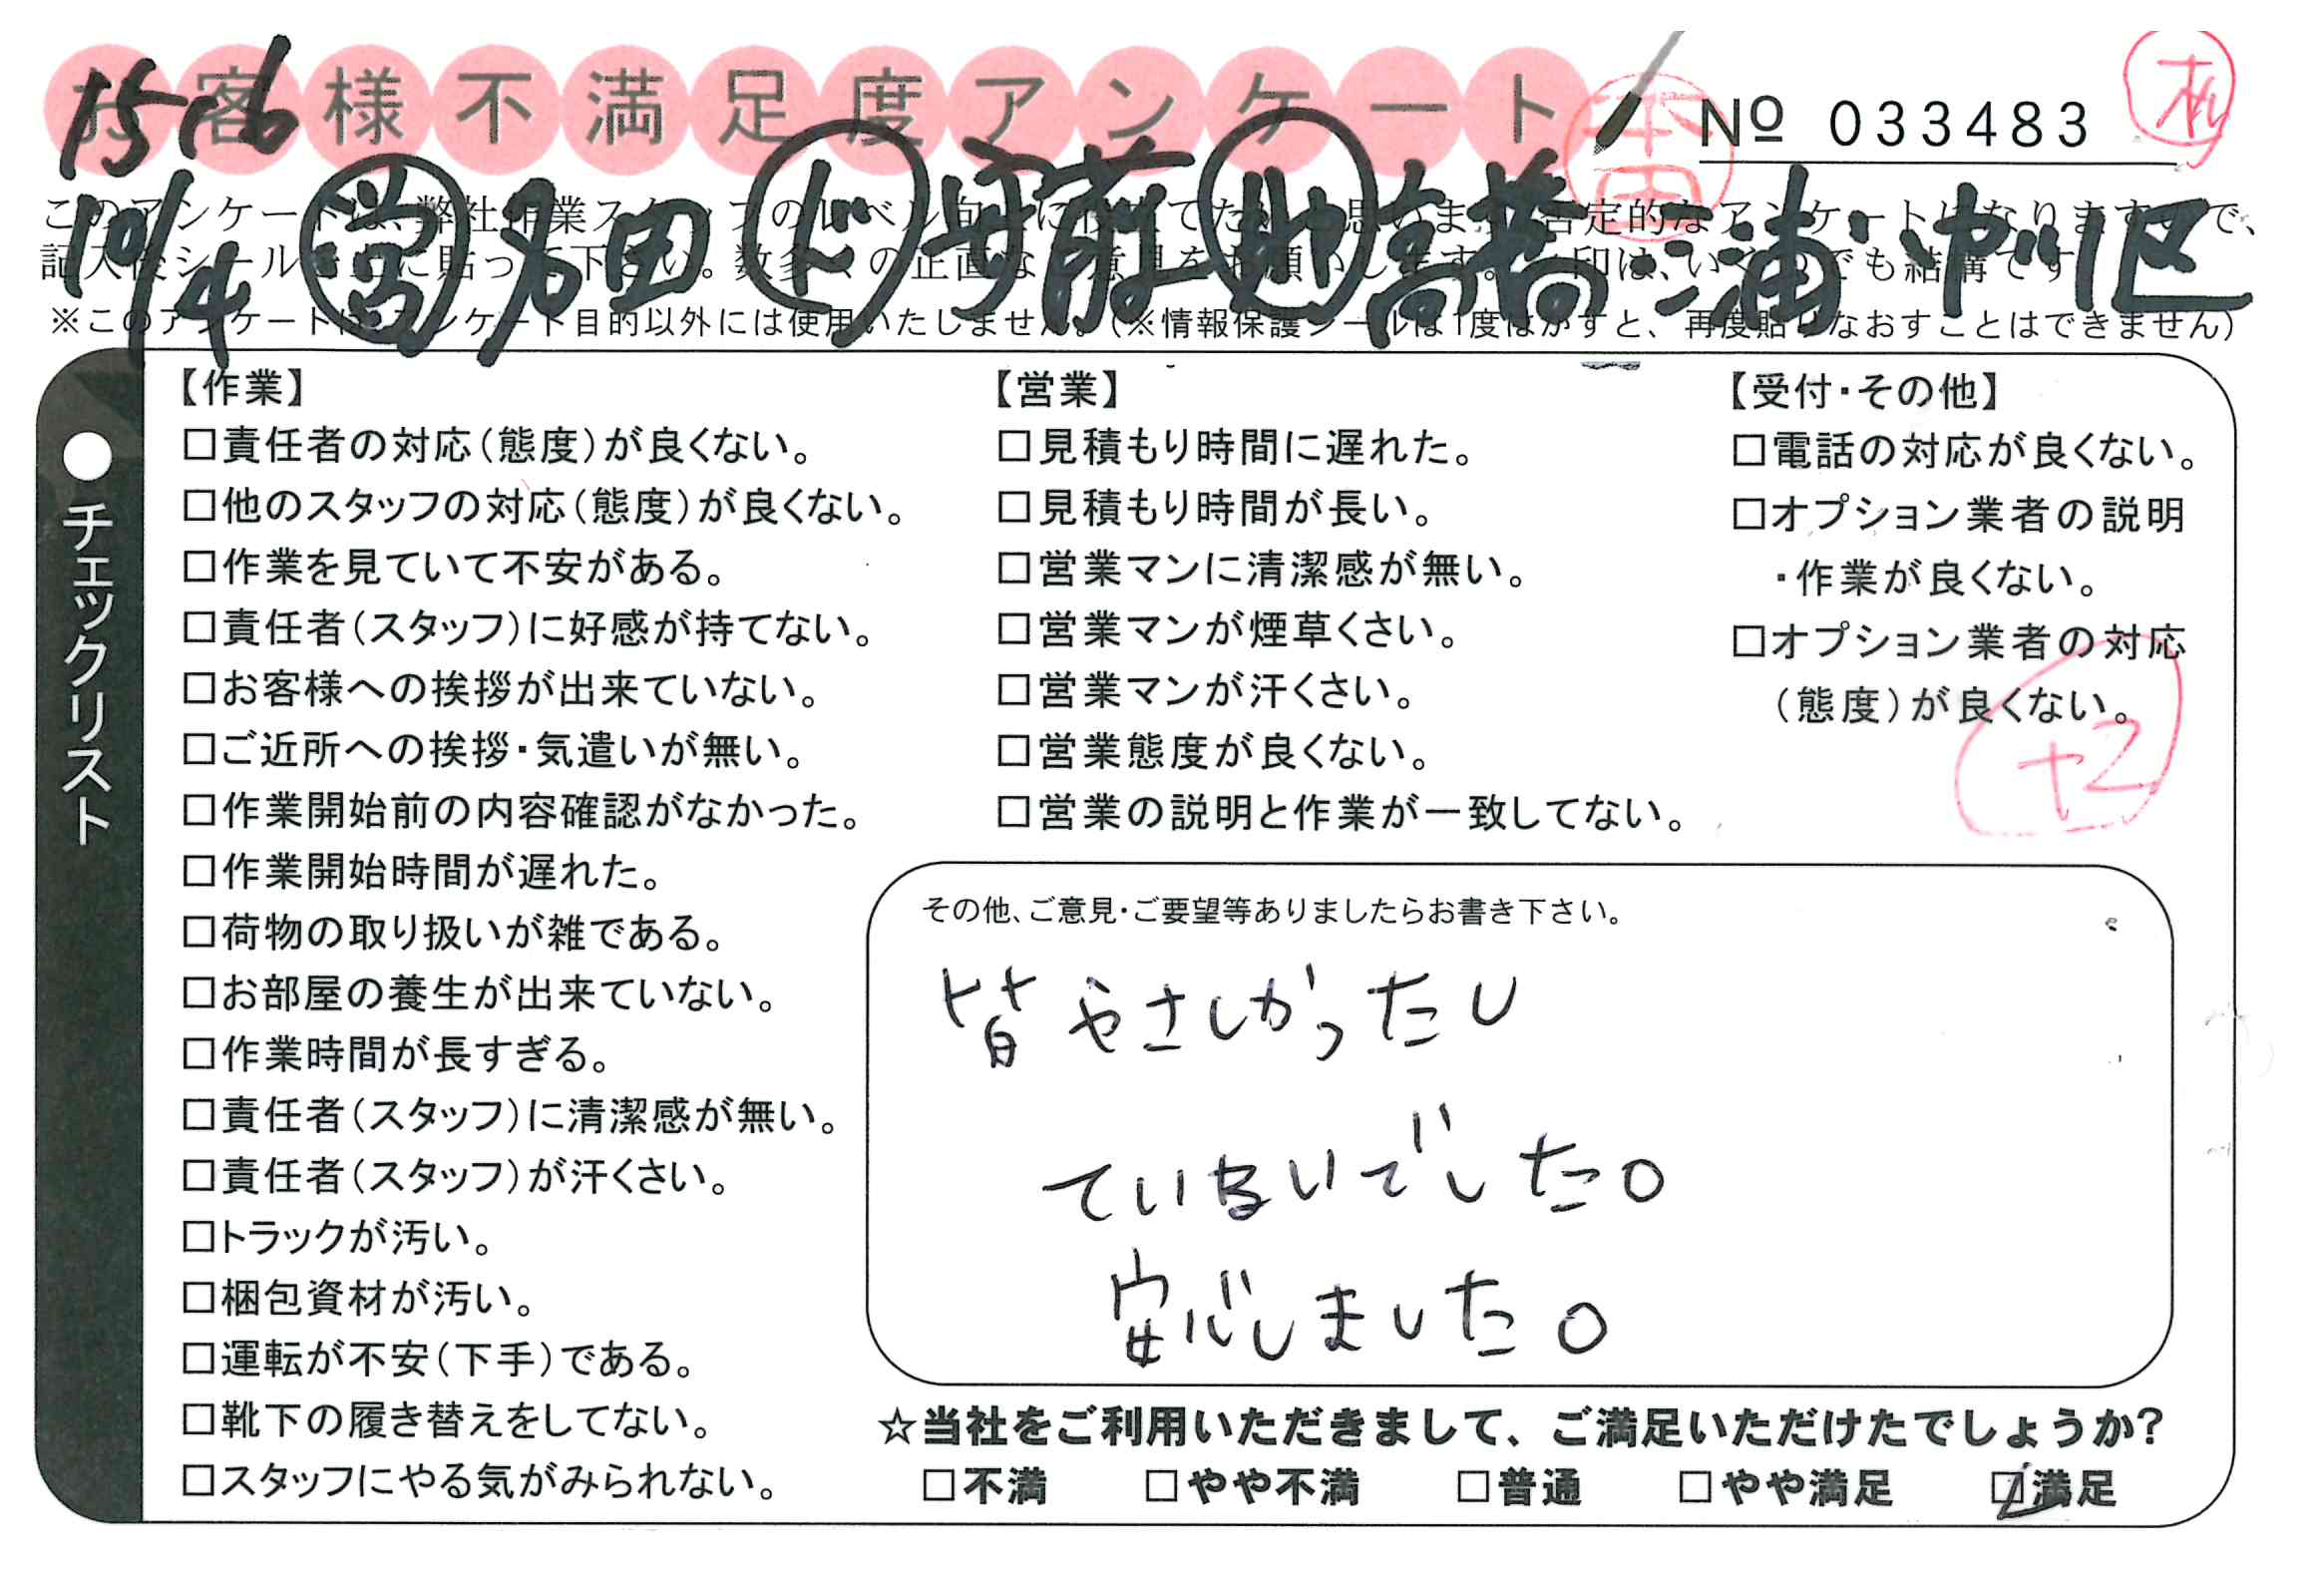 お客様不満足度アンケート
No 033483
1516
10/4 営 多田 ド 丹前 他 高橋 三浦 中川区
※このアンケートはアンケート目的以外には使用いたしません。(※情報保護シールは1度はがすと、再度貼りなおすことはできません)
●チェックリスト
【作業】
□責任者の対応(態度)が良くない。
□他のスタッフの対応(態度)が良くない。
□作業を見ていて不安がある。
□責任者(スタッフ)に好感が持てない。
□お客様への挨拶が出来ていない。
□ご近所への挨拶・気遣いが無い。
□作業開始前の内容確認がなかった。
□作業開始時間が遅れた。
□荷物の取り扱いが雑である。
□お部屋の養生が出来ていない。
□作業時間が長すぎる。
□責任者(スタッフ)に清潔感が無い。
□責任者(スタッフ)が汗くさい。
□トラックが汚い。
□梱包資材が汚い。
□運転が不安(下手)である。
□靴下の履き替えをしてない。
□スタッフにやる気がみられない。
【営業】
□見積もり時間に遅れた。
□見積もり時間が長い。
□営業マンに清潔感が無い。
□営業マンが煙草くさい。
□営業マンが汗くさい。
□営業態度が良くない。
□営業の説明と作業が一致してない。
【受付・その他】
□電話の対応が良くない。
□オプション業者の説明
・作業が良くない。
□オプション業者の対応
(態度)が良くない。
+2
その他、ご意見・ご要望等ありましたらお書き下さい。
皆やさしかったし
ていねいでした。
安心しました。
☆当社をご利用いただきまして、ご満足いただけたでしょうか?
□不満 □やや不満 □普通 □やや満足 ☑満足